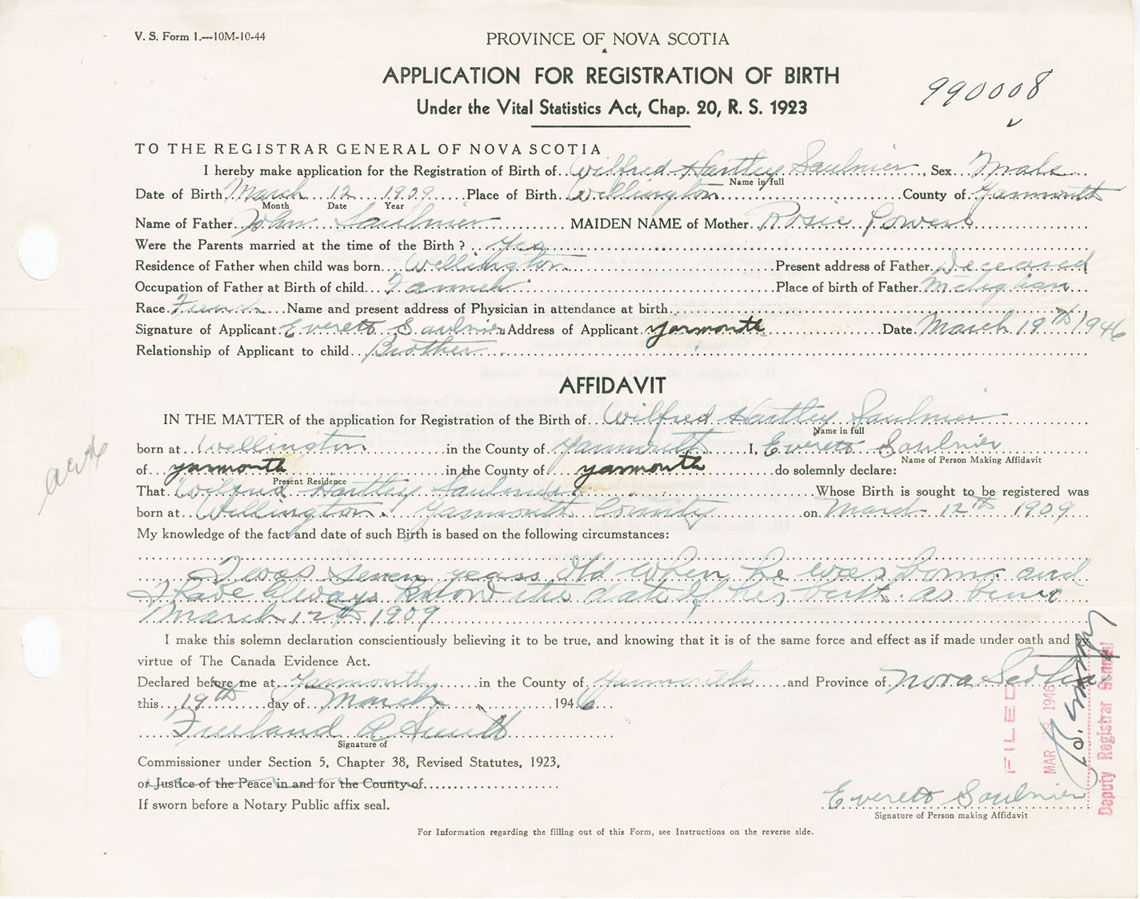 V. S. Form 1.—10M-10-44
PROVINCE OF NOVA SCOTIA
APPLICATION FOR REGISTRATION OF BIRTH
Under the Vital Statistics Act, Chap. 20, R. S. 1923
990008
TO THE REGISTRAR GENERAL OF NOVA SCOTIA
I hereby make application for the Registration of Birth of Wilfred Hartley Saulnier Sex Male
Name in full
Date of Birth March 12 1909 Place of Birth Wellington County of Yarmouth
Month Date Year
Name of Father John Saulnier MAIDEN NAME of Mother Rosie Powers
Were the Parents married at the time of the Birth? Yes
Residence of Father when child was born Wellington Present address of Father Deceased
Occupation of Father at Birth of child Place of birth of Father
Race French Name and present address of Physician in attendance at birth
Signature of Applicant Everett Saulnier Address of Applicant Yarmouth Date March 19th 1946
Relationship of Applicant to child Brother
AFFIDAVIT
IN THE MATTER of the application for Registration of the Birth of Wilfred Hartley Saulnier
Name in full
born at Wellington in the County of Yarmouth I, Everett Saulnier
Name of Person Making Affidavit
of Yarmouth in the County of Yarmouth do solemnly declare:
Present Residence
That Wilfred Hartley Saulnier Whose Birth is sought to be registered was
born at Wellington Yarmouth County on March 12th 1909
My knowledge of the fact and date of such Birth is based on the following circumstances:
I was seven years old when he was born and
I have always know the date of his birth as being
March 12th 1909
I make this solemn declaration conscientiously believing it to be true, and knowing that it is of the same force and effect as if made under oath and by
virtue of The Canada Evidence Act.
Declared before me at Yarmouth in the County of Yarmouth and Province of Nova Scotia
this 19th day of March 1946
Signature of
Commissioner under Section 5, Chapter 38, Revised Statutes, 1923,
or Justice of the Peace in and for the County of
If sworn before a Notary Public affix seal.
Everett Saulnier
Signature of Person making Affidavit
FILED
MAR 1946
Deputy Registrar General
For Information regarding the filling out of this Form, see Instructions on the reverse side.